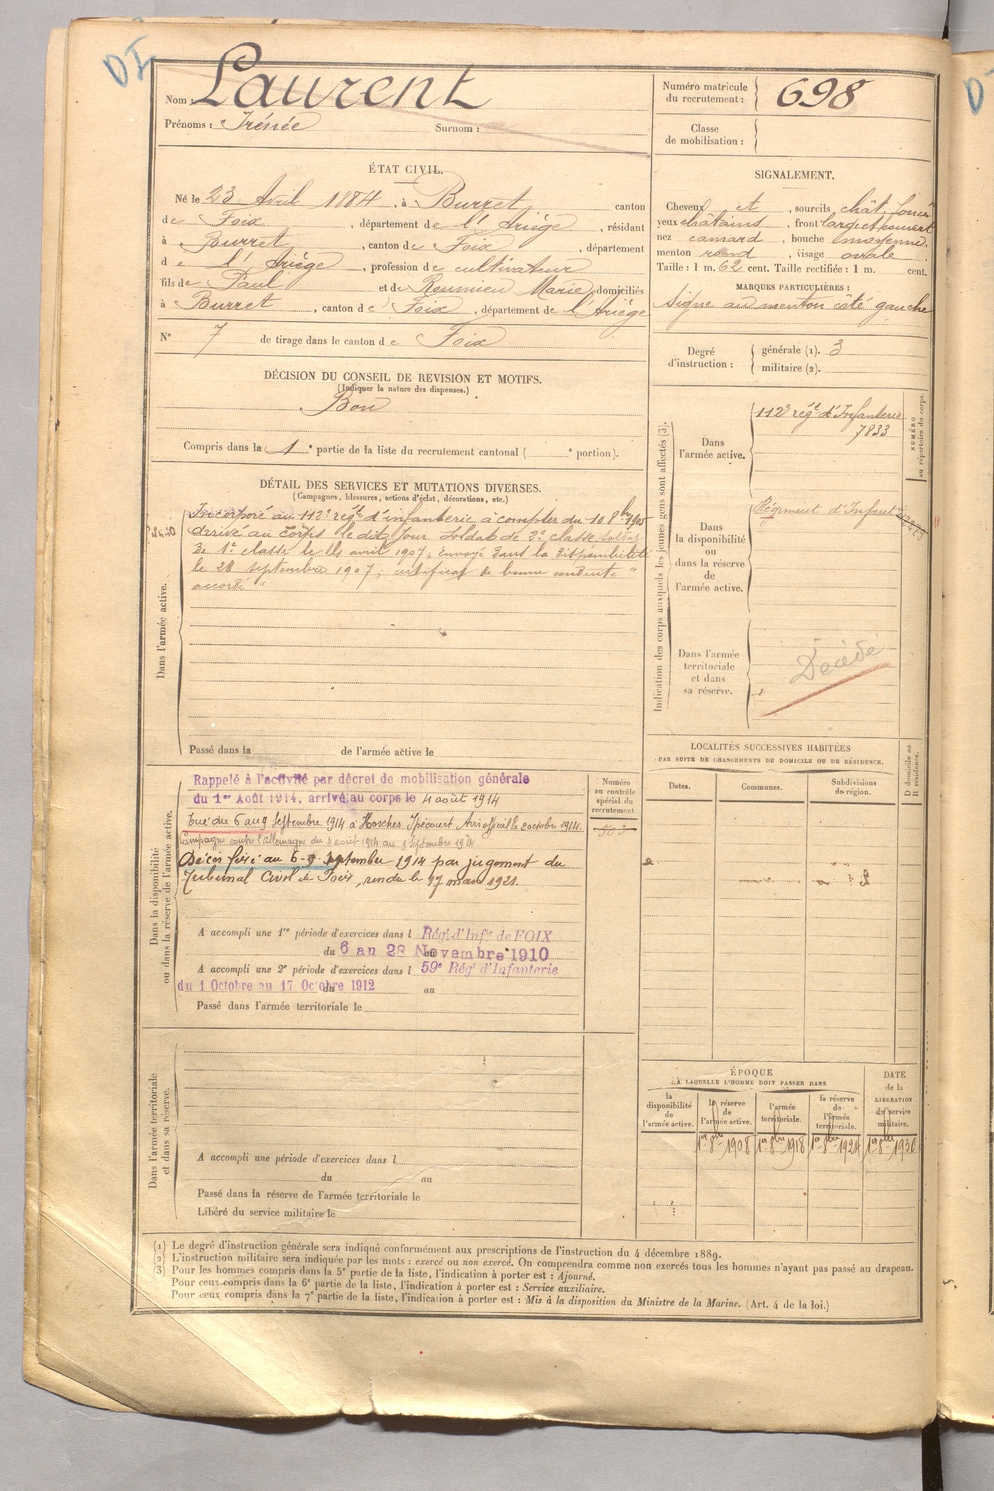 DI
Nom : Laurent
Prénoms : Irénée Surnom :
Numéro matricule du recrutement : 698
Classe de mobilisation :
ÉTAT CIVIL.
Né le 23 Avril 1884, à Burret canton
de Foix, département de l'Ariège, résidant
à Burret, canton de Foix, département
de l'Ariège, profession de cultivateur
fils de Paul et de Roumieu Marie, domiciliés
à Burret, canton de Foix, département de l'Ariège
N° 7 de tirage dans le canton de Foix
SIGNALEMENT.
Cheveux et, sourcils chât. foncé
yeux châtains, front large et couvert
nez camard, bouche moyenne,
menton rond, visage ovale
Taille : 1 m. 62 cent. Taille rectifiée : 1 m. cent.
MARQUES PARTICULIÈRES :
Signe au menton côté gauche
Degré d'instruction : générale (1). 3
militaire (2).
DÉCISION DU CONSEIL DE REVISION ET MOTIFS.
(Indiquer la nature des dispenses.)
Bon
Compris dans la 1e partie de la liste du recrutement cantonal ( e portion).
DÉTAIL DES SERVICES ET MUTATIONS DIVERSES.
(Campagnes, blessures, actions d'éclat, décorations, etc.)
Dans l'armée active.
Incorporé au 112e régt d'infanterie à compter du 10 8bre 1905
Arrivé au corps le dit jour. Soldat de 2e classe. soldat
de 1e classe le avril 1907. Envoyé dans la disponibilité
le 28 septembre 1907, certificat de bonne conduite "
accordé "
Passé dans la de l'armée active le
Indication des corps auxquels les jeunes gens sont affectés (3).
NUMÉRO au répertoire du corps.
Dans l'armée active.
112e régt d'Infanterie
7833
Dans la disponibilité ou dans la réserve de l'armée active.
Régiment d'Infant
Dans l'armée territoriale et dans sa réserve.
Décédé
LOCALITÉS SUCCESSIVES HABITÉES
PAR SUITE DE CHANGEMENTS DE DOMICILE OU DE RÉSIDENCE.
Dates. Communes. Subdivisions de région. D domicile ou R résidence.
Dans la disponibilité ou dans la réserve de l'armée active.
Numéro au contrôle spécial du recrutement
Rappelé à l'activité par décret de mobilisation générale
du 1er Août 1914, arrivé au corps le 4 août 1914
Tué du 6 au 9 Septembre 1914 à Hosches Ipécourt Avis officiel le 2 octobre 1914.
Campagne contre l'Allemagne du 4 août 1914 au 9 septembre 1914
Décès fixé au 6-9 septembre 1914 par jugement du
Tribunal Civil de Foix, rendu le 17 mars 1921.
A accompli une 1re période d'exercices dans l Régt d'Infie de FOIX
du 6 au 28 Novembre 1910
A accompli une 2e période d'exercices dans l 59e Régt d'Infanterie
du 1 Octobre au 17 Octobre 1912 au
Passé dans l'armée territoriale le
ÉPOQUE
A LAQUELLE L'HOMME DOIT PASSER DANS
DATE de la LIBÉRATION du service militaire.
la disponibilité de l'armée active. la réserve de l'armée active. l'armée territoriale. la réserve de l'armée territoriale.
1er 8bre 1908 1er 8bre 1918 1er 8bre 1924 1er 8bre 1930
Dans l'armée territoriale et dans sa réserve.
A accompli une période d'exercices dans l
du au
Passé dans la réserve de l'armée territoriale le
Libéré du service militaire le
(1) Le degré d'instruction générale sera indiqué conformément aux prescriptions de l'instruction du 4 décembre 1889.
(2) L'instruction militaire sera indiquée par les mots : exercé ou non exercé. On comprendra comme non exercés tous les hommes n'ayant pas passé au drapeau.
(3) Pour les hommes compris dans la 5e partie de la liste, l'indication à porter est : Ajourné.
Pour ceux compris dans la 6e partie de la liste, l'indication à porter est : Service auxiliaire.
Pour ceux compris dans la 7e partie de la liste, l'indication à porter est : Mis à la disposition du Ministre de la Marine. (Art. 4 de la loi.)